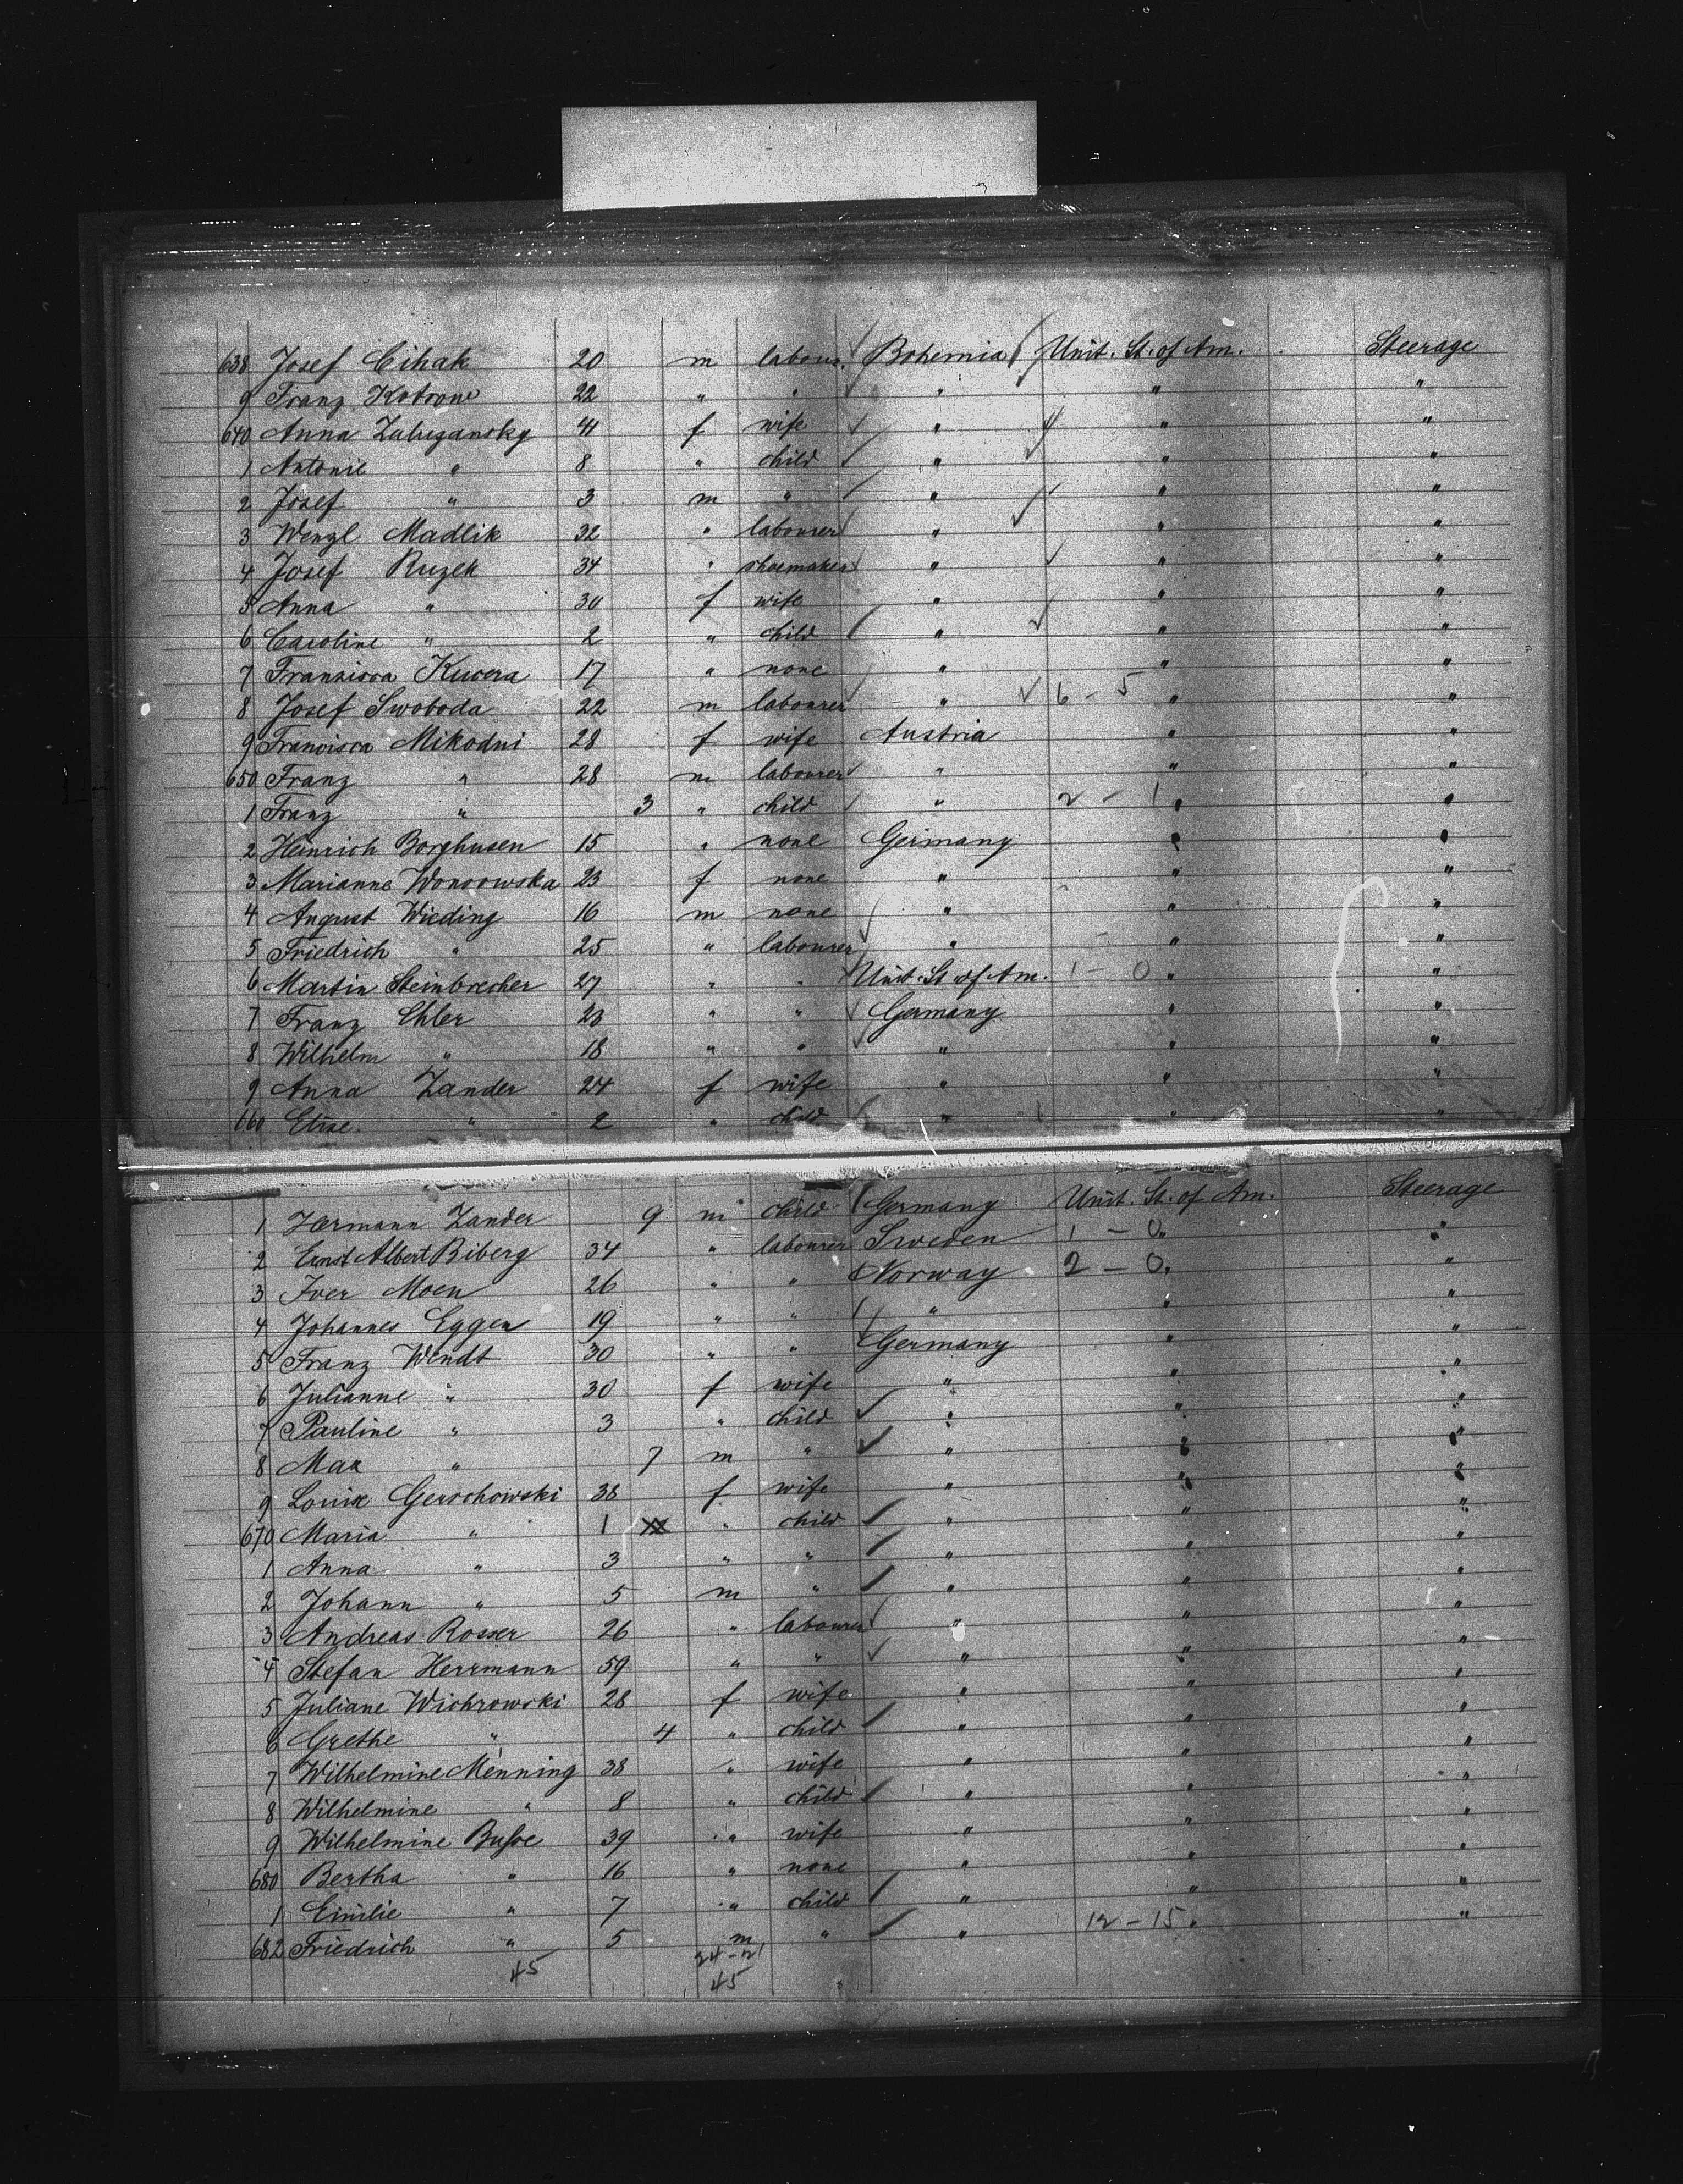 638 Josef Cihak 20 m labour. Bohemia Unit. St. of Am. Steerage
9 Franz Kotrow 22 " " " " "
640 Anna Zaluzansky 41 f wife " " "
1 Antonie " 8 " child " " "
2 Josef " 3 m " " " "
3 Wenzl Madlik 32 " labourer " " "
4 Josef Ruzek 34 " shoemaker " " "
5 Anna " 30 f wife " " "
6 Caroline " 2 " child " " "
7 Franzisca Kucera 17 " none " " "
8 Josef Swoboda 22 m labourer " 6 - 5 " "
9 Francisca Mikodni 28 f wife Austria " "
650 Franz " 28 m labourer " " "
1 Franz " 3 " child " 2 - 1 " "
2 Heinrich Borghusen 15 " none Germany " "
3 Marianne Wonsowska 23 f none " " "
4 August Wieding 16 m none " " "
5 Friedrich " 25 " labourer " " "
6 Martin Steinbrecher 27 " " Unit. St. of Am. 1 - 0 " "
7 Franz Ehler 23 " " Germany " "
8 Wilhelm " 18 " " " " "
9 Anna Zander 24 f wife " " "
660 Elise " 2 " child " " "
1 Hermann Zander 9 m child Germany Unit. St. of Am. Steerage
2 Ernst Albert Biberg 34 " labourer Sweden 1 - 0 " "
3 Iver Moen 26 " " Norway 2 - 0 " "
4 Johannes Eggen 19 " " " " "
5 Franz Wendt 30 " " Germany " "
6 Julianne " 30 f wife " " "
7 Pauline " 3 " child " " "
8 Max " 7 m " " " "
9 Louise Gerschowski 38 f wife " " "
670 Maria " 1 " child " " "
1 Anna " 3 " " " " "
2 Johann " 5 m " " " "
3 Andreas Rosser 26 " labourer " " "
4 Stefan Herrmann 59 " " " " "
5 Juliane Wichrowski 28 f wife " " "
6 Grethe " 4 " child " " "
7 Wilhelmine Menning 38 " wife " " "
8 Wilhelmine " 8 " child " " "
9 Wilhelmine 39 " wife " " "
680 Bertha " 16 " none " " "
1 Emilie " 7 " child " " "
682 Friedrich " 5 m " " 12 - 15 " "
45 24 - 21
45